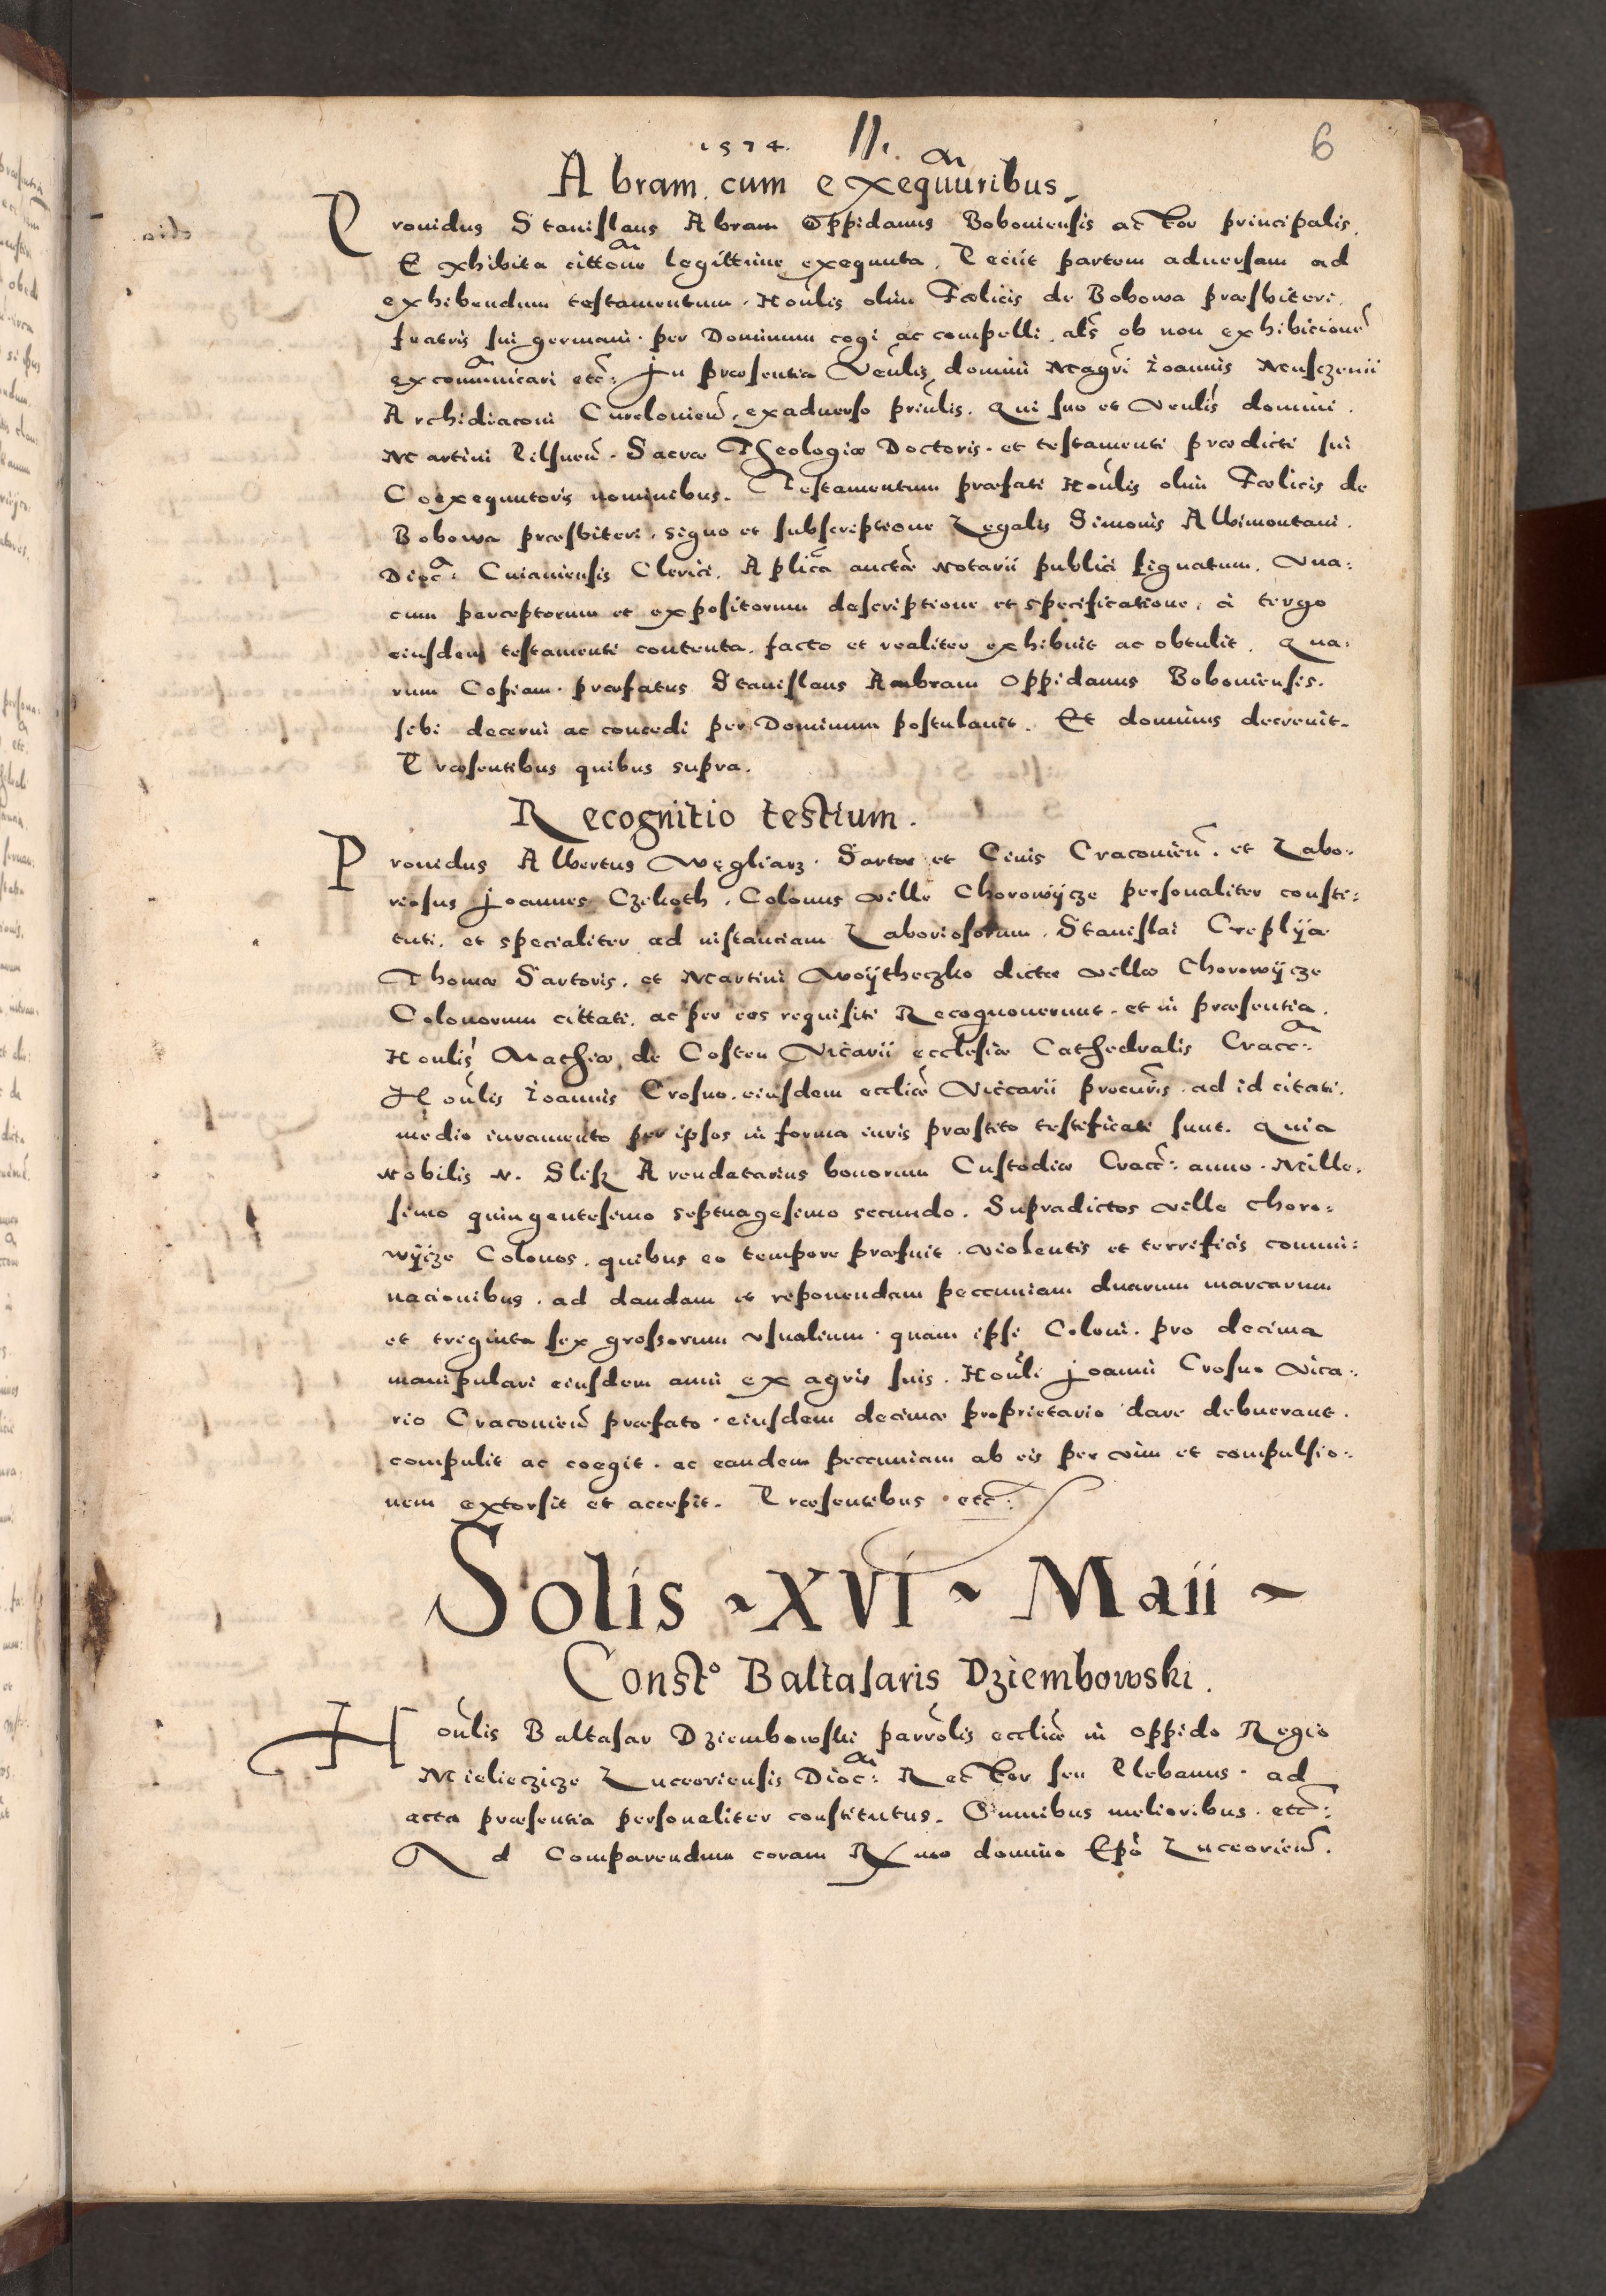 1574. 11. 6
Abram cum exequuribus
Prouidus Stanislaus Abram Oppidanus Bobouiensis actor principalis.
Exhibita cittone legittime exequuta. Peciit partem aduersam ad
exhibendum testamentum. Honlis olim Foelicis de Bobowa præsbiteri.
fratris sui germani. per Dominum cogi ac compelli. als ob non exhibicionem
excommunicari etc: In præsentia Venlis domini Magri Ioannis
Archidiaconi Curelouien. exaduerso priulis. Qui suo et Venlis domini.
Martini Pilsnen. Sacræ Theologiæ Doctoris. et testamenti prædicti sui
Coexequutoris nominibus. Testamentum præfati Honlis olim Foelicis de
Bobowa præsbiteri. signo et subscriptione Legalis Simonis Albimontani.
Dioc: Cuiauiensis Clerici. Aplica auctæ Notarii publici signatum. Vna:
cum perceptorum et expositorum descriptione et specificatione. á tergo
eiusdem testamenti contenta. facto et realiter exhibuit ac obtulit. Qua:
rum Copiam. præfatus Stanislaus Ambram Oppidanus Bobouiensis.
sibi decerni ac concedi per Dominum postulauit. Et dominus decreuit.
Præsentibus quibus supra.
Recognitio testium.
Prouidus Albertus Węgliarz. Sartor et Ciuis Cracouien. et Labo:
riosus Joannes Czekoth. Colonus ville Chorowÿcze personaliter consti:
tuti. et specialiter ad instanciam Laboriosorum. Stanislai Creplÿa
Thomæ Sartoris. et Martini Woÿtheczko dictæ villæ Chorowÿcze
Colonorum cittati. ac per eos requisiti Recognouerunt. et in præsentia.
Honlis Mathiæ de Costen Vicarii ecclesiæ Cathedralis Crac:
Honlis Ioannis Crosno. eiusdem eccliæ Viccarii procuris. ad id citati.
medio iuramento per ipsos in forma iuris præstito testificati sunt. Quia
Nobilis N. Slisz Arendatarius bonorum Custodiæ Crac: anno. Mille:
simo quingentesimo septuagesimo secundo. Supradictos ville Choro:
wÿcze Colonos. quibus eo tempore præfuit. violentis et terrificis commi:
nacionibus. ad dandam et reponendam peccuniam duarum marcarum
et triginta sex grossorum vsualium. quam ipsi Coloni. pro decima
manipulari eiusdem anni ex agris suis. Honli Joanni Crosno Vica:
rio Cracouien præfato. eiusdem decimæ proprietario dare debuerant.
compulit ac coegit. ac eandem peccuniam ab eis per vim et compulsio:
nem extorsit et accepit. Præsentibus. etc:
Solis ~ XVI ~ Maii ~
Const° Baltasaris Dziembowski.
Honlis Baltasar Dziembowski parrolis eccliæ in oppido Regio
Mielieczicze Luceoriensis Dioc: Rector seu Plebanus. ad
acta præsentia personaliter constitutus. Omnibus melioribus. etc:
Ad Comparendum coram Rxmo domino Epo Luceorien.